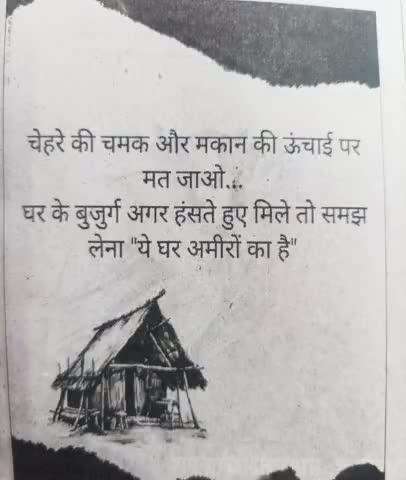 चेहरे की चमक और मकान की ऊंचाई पर
मत जाओ...
घर के बुजुर्ग अगर हंसते हुए मिले तो समझ
लेना "ये घर अमीरों का है"